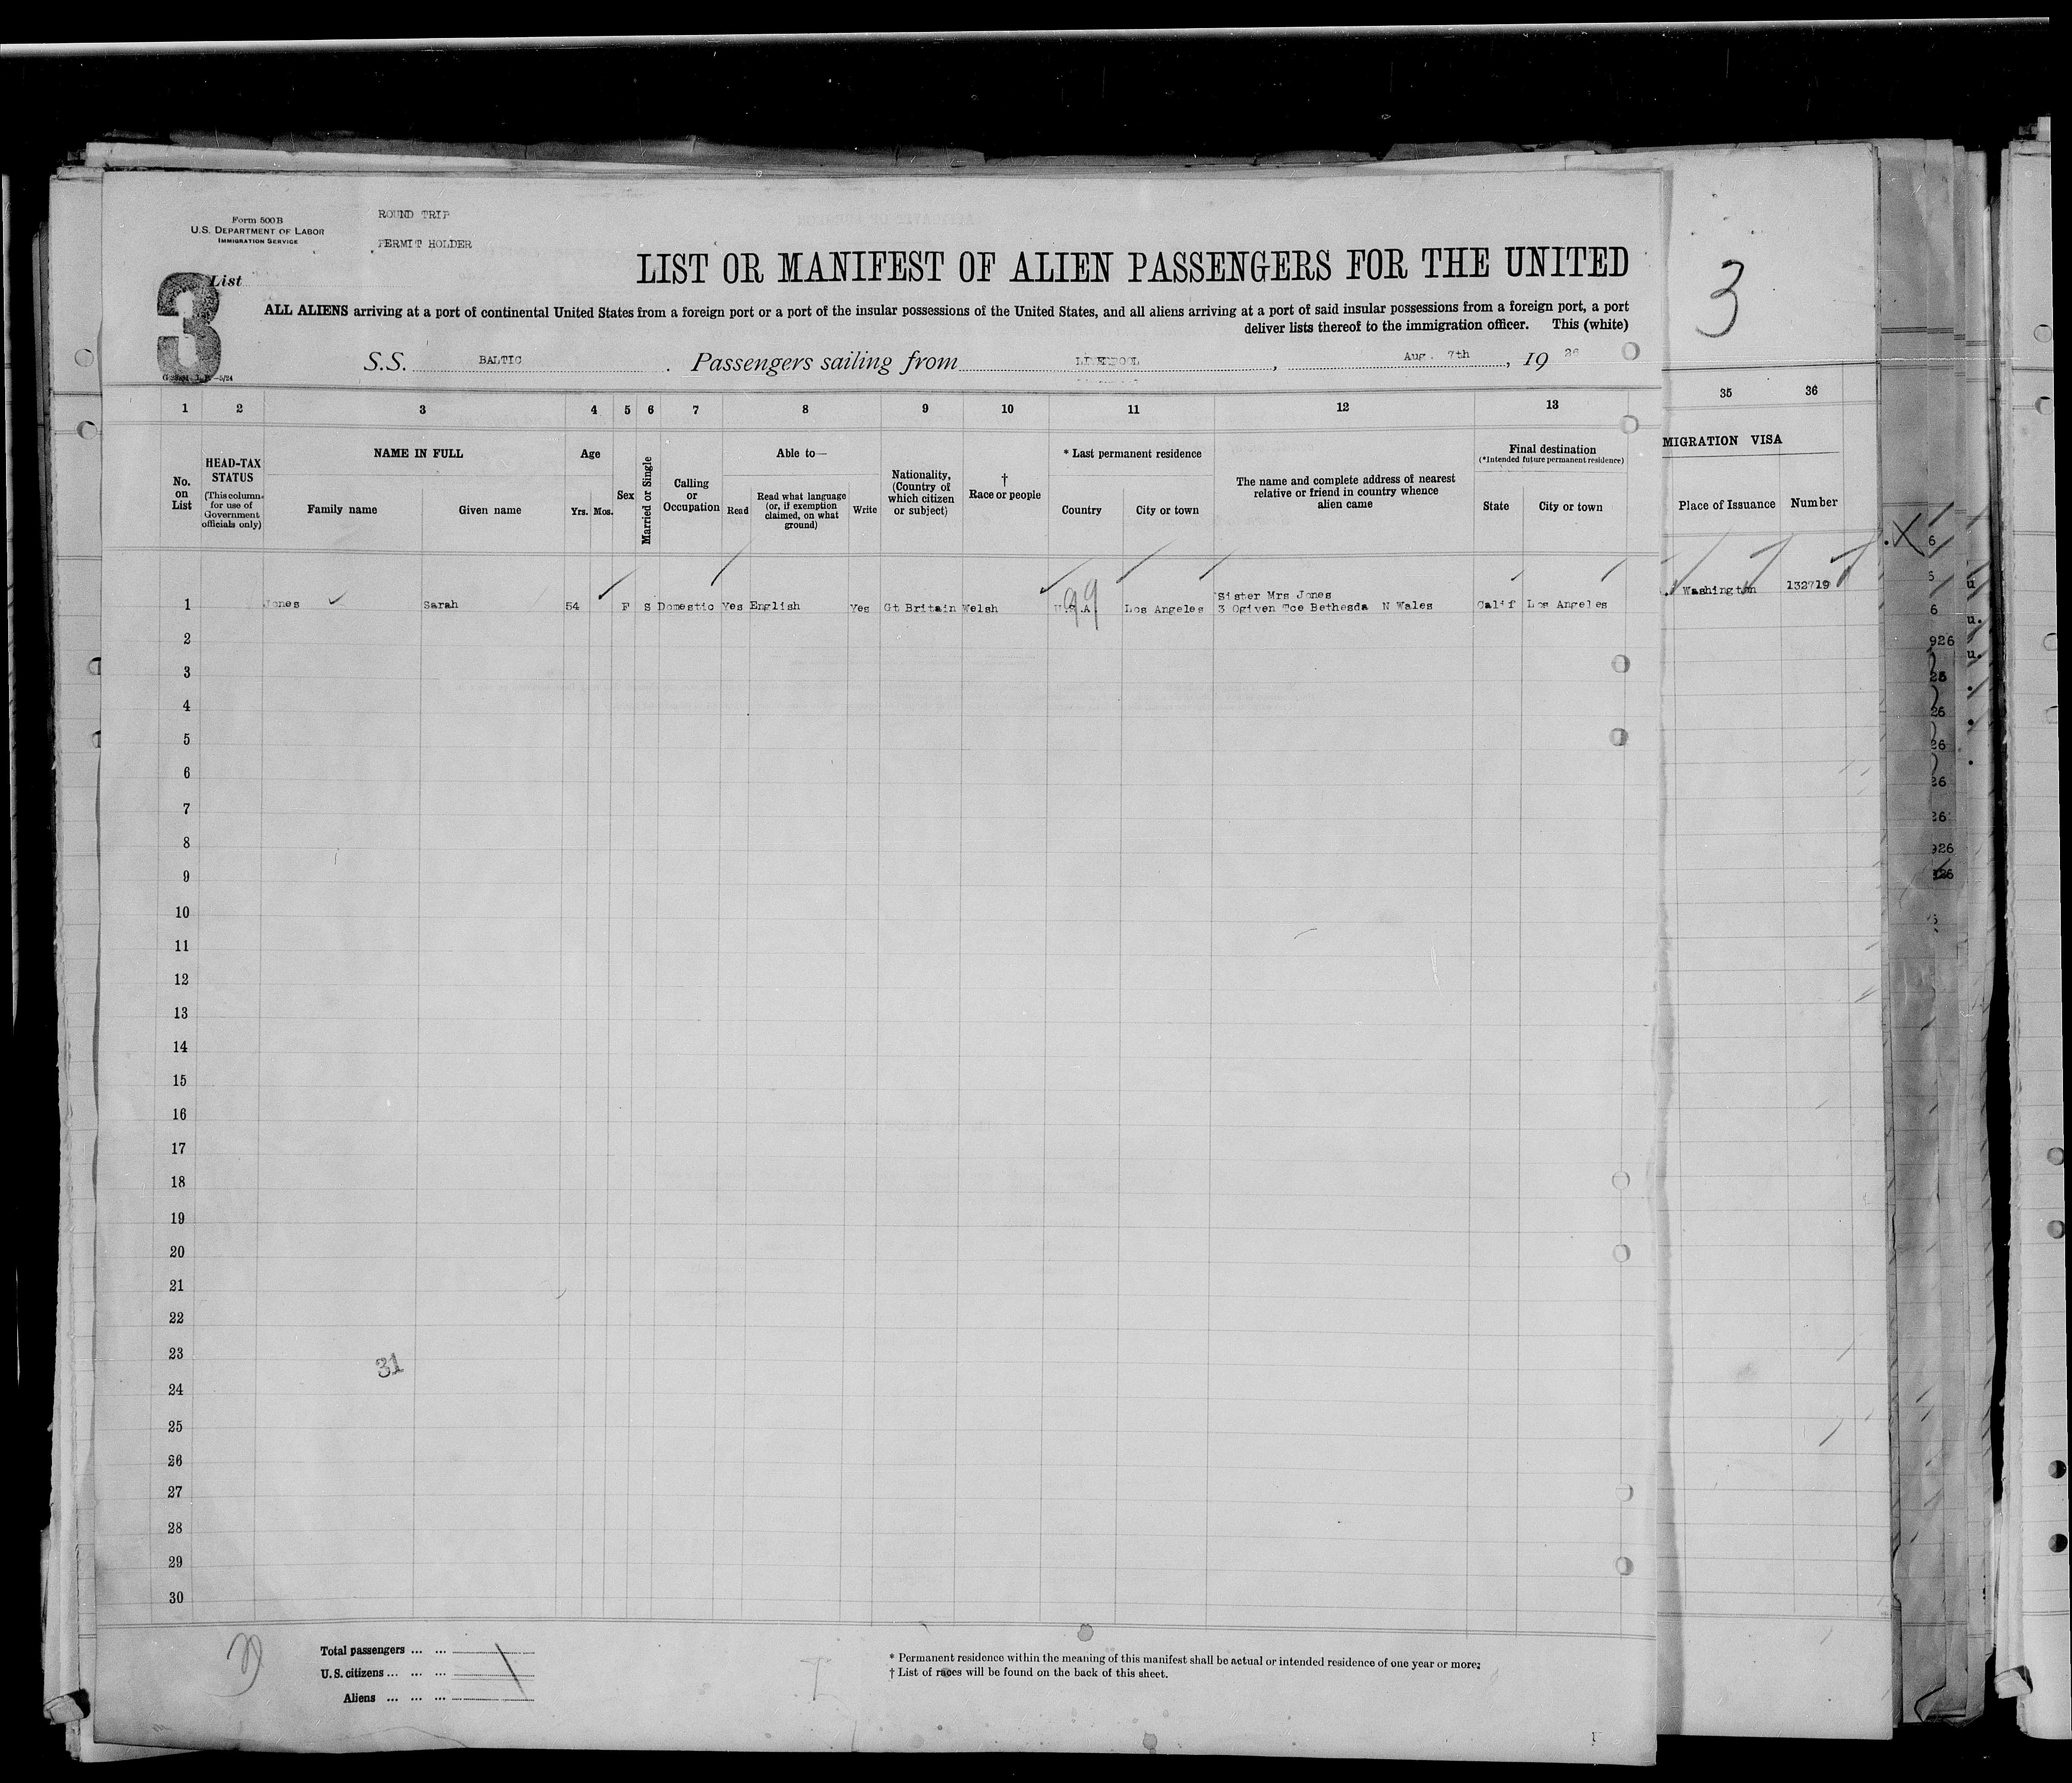 Form 500B
U.S. DEPARTMENT OF LABOR
IMMIGRATION SERVICE
ROUND TRIP
PERMIT HOLDER
3
List
LIST OR MANIFEST OF ALIEN PASSENGERS FOR THE UNITED
ALL ALIENS arriving at a port of continental United States from a foreign port or a port of the insular possessions of the United States, and all aliens arriving at a port of said insular possessions from a foreign port, a port
deliver lists thereof to the immigration officer. This (white)
S.S. BALTIC. Passengers sailing from LIVERPOOL, Aug. 7th, 19 26
3
1 2 3 4 5 6 7 8 9 10 11 12 13 35 36
No. on List
HEAD-TAX STATUS
(This column for use of Government officials only)
NAME IN FULL
Family name Given name
Age
Yrs. Mos.
Sex
Married or Single
Calling or Occupation
Able to—
Read
Read what language (or, if exemption claimed, on what ground)
Write
Nationality, (Country of which citizen or subject)
† Race or people
* Last permanent residence
Country City or town
The name and complete address of nearest relative or friend in country whence alien came
Final destination
(*Intended future permanent residence)
State City or town
MIGRATION VISA
Place of Issuance Number
Sister Mrs Jones
1 Jones Sarah 54 F S Domestic Yes English Yes Gt Britain Welsh U.S.A Los Angeles 3 Ogiven Tce Bethesda N Wales Calif Los Angeles Washington 132719
99
2
3
4
5
6
7
8
9
10
11
12
13
14
15
16
17
18
19
20
21
22
23
31
24
25
26
27
28
29
30
Total passengers ... ...
U.S. citizens ... ... ...
Aliens ... ... ...
* Permanent residence within the meaning of this manifest shall be actual or intended residence of one year or more.
† List of races will be found on the back of this sheet.